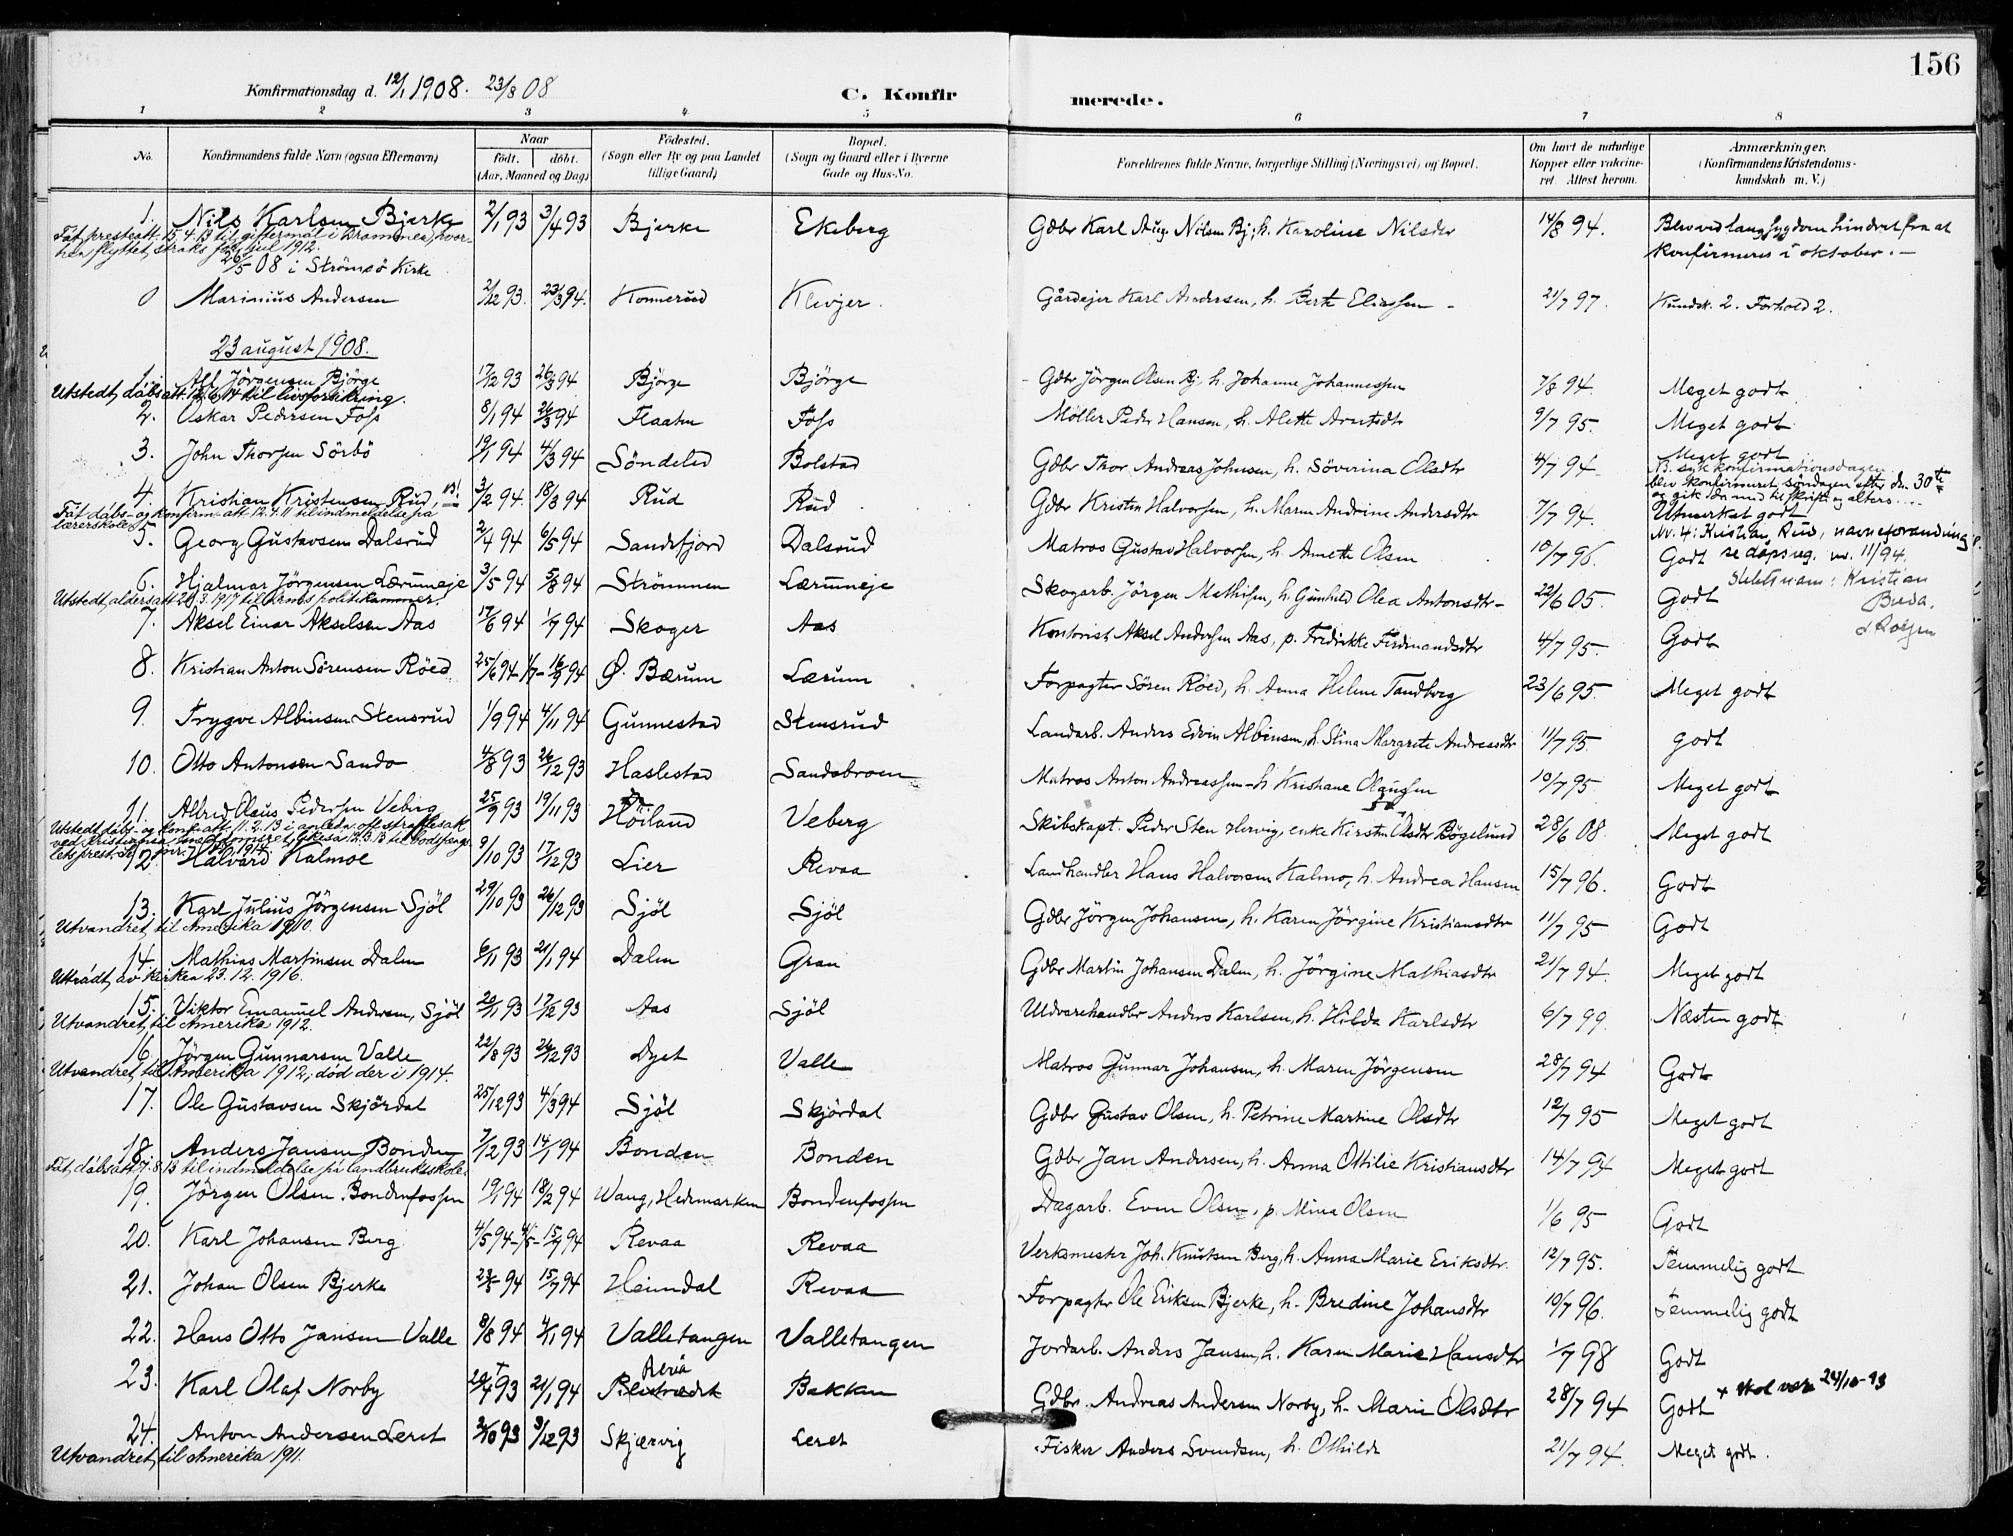 156
Konfirmationsdag d. 12/1 1908. 23/8 08
C. Konfirmerede.
1 2 3 4 5 6 7 8
No. Konfirmandens fulde Navn (ogsaa Efternavn) Naar födt. döbt. (Aar, Maaned og Dag) Födested. (Sogn eller By og paa Landet tillige Gaard) Bopæl. (Sogn og Gaard eller i Byerne Gade og Hus-No. Forældrenes fulde Navne, borgerlige Stilling (Næringsvei) og Bopæl. Om havt de naturlige Kopper eller vakcineret. Attest herom. Anmærkninger. (Konfirmandens Kristendomskundskab m. V.)
1. Nils Karlsen Bjerke 2/1 93 3/4 93 Bjerke Ekeberg Gdbr Karl Aug. Nilsen Bj., h. Karoline Nilsdtr 14/8 94. Blev ved lang sygdom hindret fra at
Fåt presteatt. 15.4.13 til giftermål i Drammen, hvor- konfirmeres i oktober. —
hen flyttet straks før jul 1912.
26/5 08 i Strömsö Kirke
0 Marinius Andersen 2/12 93. 23/3 94. Konnerud Klevjer. Gårdejer Karl Andersen, h. Berte Eliassen - 21/7 97. Kundsk. 2. Forhold 2.
23 august 1908.
1. Alf Jörgensen Björge 17/12 93 26/3 94 Björge Björge Gdbr Jörgen Olsen Bj. h. Johanne Johannessen 7/8 94. Meget godt
Utstedt dåbsatt. 12.6.14 til livsforsikring.
2. Oskar Pedersen Foss 8/1 94 26/3 94 Flaaten Foss Møller Peder Hansen, h. Alette Arntsdtr 9/7 95. Meget godt
3. John Thorsen Sörbö 19/1 94 4/3 94 Söndeled Bolstad Gdbr Thor Andreas Johnsen, h. Söverina Olsdtr 4/7 94 Meget godt
NB. syk konfirmationsdagen
blev konfirmeret söndagen efter den 30te
4. Kristian Kristensen Rud, NB! 3/2 94. 18/3 94 Rud Rud Gdbr Kristen Halvorsen, h. Maren Andrine Andersdtr 7/7 94. Utmerket godt
Fåt dåbs- og konfirm.att. 12.4.11 til indmeldelse på
lærerskole
Nr. 4: Kristian Rud, navneforandring
5. Georg Gustavsen Dalsrud 2/4 94 6/5 94 Sandefjord Dalsrud Matros Gustav Halvorsen, h. Anette Olsen 10/7 96. Godt se dåpsreg. nr. 11/94.
6. Hjalmar Jörgensen Lærumeje 3/5 94 5/8 94 Strömmen Lærumeje Skogarb. Jörgen Mathisen, h. Gunhild Olea Antonsdtr - 22/6 05. Godt
Utstedt aldersatt. 20.3.1917 til Horns politikammer.
7. Aksel Einar Akselsen Aas 17/6 94 1/7 94 Skoger Aas Kontorist Aksel Andersen Aas, p. Fredrikke Ferdinandsdtr 4/7 95. Godt
8. Kristian Anton Sörensen Röed 25/6 94 1/7 - 16/9 94 Ø. Bærum Lærum Forpagter Sören Röed, h. Anna Helene Tandberg 23/6 95 Meget godt
9. Trygve Albinsen Stensrud 1/9 94 4/11 94 Gunnestad Stensrud Landarb. Anders Edvin Albinsen, h. Stina Margrete Andreasdtr 11/7 95. godt
10. Otto Antonsen Sando 4/8 93 26/12 93 Haslestad Sandobroen Matros Anton Andreassen - h Kristiane Olaussen 10/7 95 Meget godt
11. Alfred Olaus Pedersen Veberg 25/9 93 19/11 93 Höiland Veberg Skibskapt. Peder Sten Herwig, enke Kirstin Olsdtr Bøgelund 28/6 08. Meget godt
Utstedt dåbs- og konf.att. 11.2.13 i anledn. off. straffesak
12. Halvard Kalmoe 9/10 93 17/12 93 Lier Revaa Landhandler Hans Halvorsen Kalmo, h. Andrea Hansen 15/7 96. Godt
13. Karl Julius Jörgensen Sjöl 29/10 93 26/12 93 Sjöl Sjöl Gdbr Jörgen Johansen, h. Karen Jörgine Kristiansdtr 11/7 95 Godt
Utvandret til Amerika 1910.
14. Mathias Martinsen Dalen 6/11 93 21/1 94 Dalen Gran Gdbr Martin Johansen Dalen, h. Jörgine Mathiasdtr 21/7 94. Meget godt
Uttrådt av kirken 23.12.1916.
15. Viktor Emanuel Andersen, Sjöl 20/11 93 17/12 93 Aas Sjöl Uldvarehandler Anders Karlsen, h. Hilda Karlsdtr 6/7 99 Næsten godt
Utvandret til Amerika 1912.
16. Jörgen Gunnarsen Valle 22/8 93 26/12 93 Dyet Valle Matros Gunnar Johansen, h. Maren Jörgensen 28/7 94 Godt
Utvandret til Amerika 1912, død der i 1914.
17. Ole Gustavsen Skjördal 25/12 93 4/3 94 Sjöl Skjördal Gdbr Gustav Olsen, h. Petrine Martine Olsdtr 12/7 95 Meget godt
18. Anders Jansen Bonden 7/12 93 14/1 94 Bonden Bonden Gdbr Jan Andersen, h. Anna Ottilie Kristiansdtr 14/7 94 Meget godt
Fåt dåbsatt. 7.8.13 til indmeldelse på landbruksskole.
19. Jörgen Olsen Bondenfossen 19/1 94 18/2 94 Wang, Hedemarken Bondenfossen Dagarb. Even Olsen, p. Mina Olsen 1/6 95 Godt
20. Karl Johansen Berg 4/5 94 - 4/5 - 15/9 94 Revaa Revaa Verksmester Joh. Knutsen Berg, h. Anna Marie Eriksdtr. 12/7 95. Temmelig godt
21. Johan Olsen Bjerke 23/5 94 15/7 94 Heimdal Revaa Forpagter Ole Eriksen Bjerke, h. Bredine Johansdtr 10/7 96. Temmelig godt
22. Hans Otto Jansen Valle 8/8 94 4/11 94 Valletangen Valletangen Jordarb. Anders Jansen, h. Karen Marie Hansdtr 1/7 98 Godt
Revå
23. Karl Olaf Norby 93 21/1 94 Bakken Gdbr. Andreas Andersen Norby, h. Marie Olsdtr 28/7 94 Godt + skal være 24/10-93
24. Anton Andersen Leret 2/10 93 3/12 93 Skjærvig Leret Fisker Anders Svendsen, h. Othilde 21/7 94. Meget godt.
Utvandret til Amerika 1911.